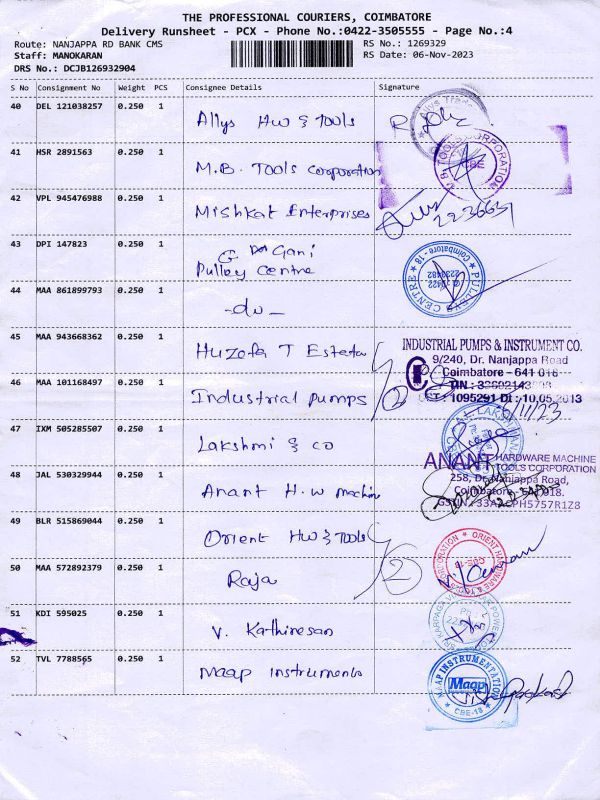 THE PROFESSIONAL COURIERS, COIMBATORE
Delivery Runsheet - PCX - Phone No.:0422-3505555 - Page No.:4
Route: NANJAPPA RD BANK CMS RS No.: 1269329
Staff: MANOKARAN RS Date: 06-Nov-2023
DRS No.: DCJB126932904
S No Consignment No Weight PCS Consignee Details Signature
40 DEL 121038257 0.250 1 Allys HW & Tools
41 HSR 2891563 0.250 1 M.B. Tools Corporation
M.B TOOLS CORPORATION
CBE
42 VPL 945476988 0.250 1 Mishkat Enterprises
43 DPI 147823 0.250 1 Gani
Pulley Centre
PULLEYS CENTRE Coimbatore - 18
44 MAA 861899793 0.250 1 -do-
45 MAA 943668362 0.250 1 Huzefa T
INDUSTRIAL PUMPS & INSTRUMENT CO.
9/240, Dr. Nanjappa Road
Coimbatore - 641 018
46 MAA 101168497 0.250 1 Industrial pumps
CST : 1095291 Dt : 10.05.2013
6/11/23
47 IXM 505285507 0.250 1 Lakshmi & co
48 JAL 530329944 0.250 1 Anant H.W machin
ANANT HARDWARE MACHINE
TOOLS CORPORATION
258, Dr. Nanjappa Road,
Coimbatore
49 BLR 515869044 0.250 1 Orient HW & Tools
ORIENT HARDWARE
50 MAA 572892379 0.250 1 Raja
2
51 KDI 595025 0.250 1 V. Kathiresan
52 TVL 7788565 0.250 1 Maap Instruments
MAAP INSTRUMENTATION
Maap
CBE-18